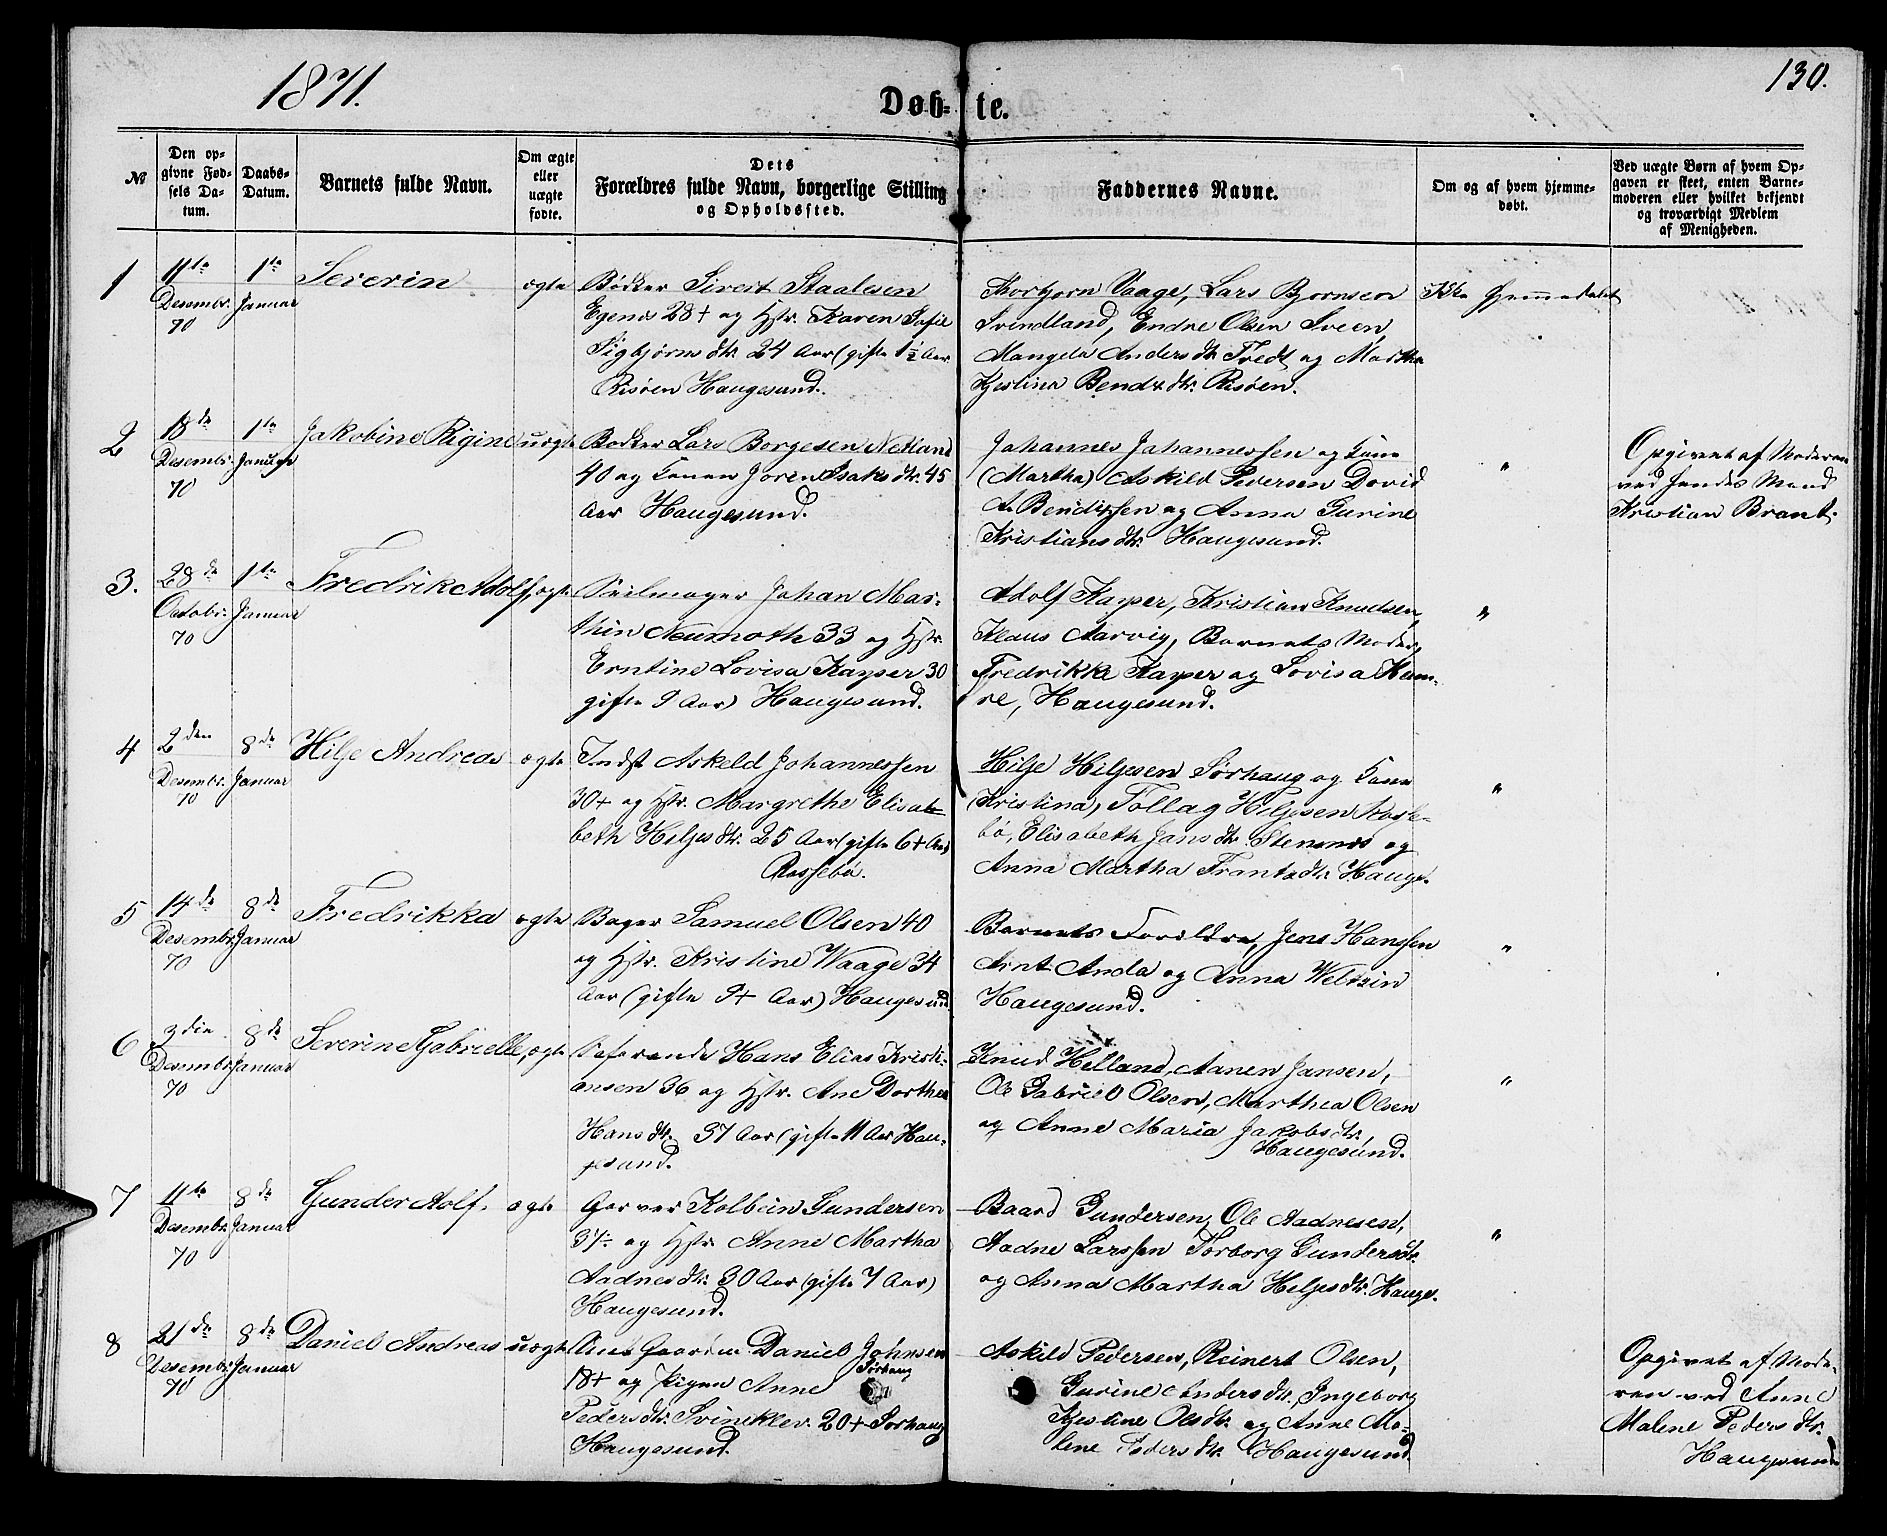 1871.
130.
Døb- te.
№
Den op-
givne Fød-
sels Da-
tum.
Daabs-
Datum.
Barnets fulde Navn.
Om ægte
eller
uægte
fødte.
Dets
Forældres fulde Navn, borgerlige Stilling
og Opholdssted.
Faddernes Navne.
Om og af hvem hjemme-
døbt.
Ved uægte Børn af hvem Op-
gaven er skeet, enten Barne-
moderen eller hvilket bekjendt
og troværdigt Medlem
af Menigheden.
1
11te
Desembr.
70
1te
Januar
Severin
ægte
Bødker Sivert Staalesen
Egenes 28+ og Hstr. Karen Sofie
Sigbjørnsdtr. 24 Aar (gifte 1½ Aar
Risøen Haugesund.
Thorbjørn Vaage, Lars Bjørnsen
Svendland, Endre Olsen Sveen,
Mangela Andersdtr. Tvedt og Martha
Kjestina Bendixdtr. Risøen.
Ikke hjemmedøbt
2
18de
Desembr.
70
1te
Januar
Jakobine Rigine
uægte
Bødker Lars Borgesen Netland
40 og Konen Joren Isaksdtr. 45
Aar Haugesund.
Johannes Johannessen og Kone
(Martha) Askild Pedersen David
A. Bendixsen og Anna Gurine
Kristiansdtr. Haugesund.
"
Opgivet af Moderen
ved hendes Mand
Kristian Brant.
3.
28de
Octobr.
70
1te
Januar
Fredrik Adolf,
ægte
Seilmager Johan Mar-
thin Neumoth 33 og Hstr.
Erntine Lovisa Kayser 30
gifte 9 Aar) Haugesund.
Adolf Kayser, Kristian Knudsen,
Klaus Aarvig, Barnets Moder,
Fredrikke Kayser og Lovisa Kam-
re, Haugesund.
"
4
2den
Desembr.
70
8de
Januar
Hilje Andreas
ægte
Indst Askeld Johannessen
30+ og Hstr. Margrethe Elisa
beth Hiljesdtr. 25 Aar (gifte 6+ Aar)
Rossebø.
Hilje Hiljesen Sørhaug og Kone
(Kristina), Tollag Hiljesen Rosse-
bø, Elisabeth Jansdtr. Stensnes og
Anna Martha Frantzdtr. Hauge.
"
5
14de
Desembr.
70
8de
Januar
Fredrikka
ægte
Bager Samuel Olsen 40
og Hstr. Kristine Waage 34
Aar (gifte 9+ Aar) Haugesund
Barnets Forældre, Jens Hanssen
Arnt Anda og Anna Weltzin
Haugesund.
"
6
3die
Desembr.
70
8de
Januar
Severine Gabrielle,
ægte
Søfarende Hans Elias Kristi-
ansen 36 og Hstr. Ane Dorthea
Hansdtr. 37 Aar (gifte 11 Aar Hau-
gesund.
Knud Helland, Aanen Jansen,
Ole Gabriel Olsen, Marthea Olsen
og Anne Maria Jakobsdtr.,
Haugesund.
"
7
11te
Desembr.
70
8de
Januar
Gunder Aolf.
ægte
Garver Kolbein Gundersen
37+ og Hstr. Anne Martha
Aadnesdtr. 30 Aar (gifte 7 Aar)
Haugesund.
Baard Gundersen, Ole Aadnesen,
Aadne Larssen Torborg Gundersdtr.
og Anna Martha Hiljesdtr. Hauges.
"
8
21de
Desembr.
70
8de
Januar
Daniel Andreas
uægte
Daniel Johnsen
Sørhaug
18+ og Pigen Anne
Pedersdtr. Svineklev. 20+ Sørhaug
Haugesund.
Askild Pedersen, Reinert Olsen,
Gurine Andersdtr., Ingeborg
Kjestine Olsdtr. og Anne Ma-
lene Pedersdtr. Haugesund.
Opgivet af Mode-
ren ved Anne
Malene Pedersdtr.
Haugesund